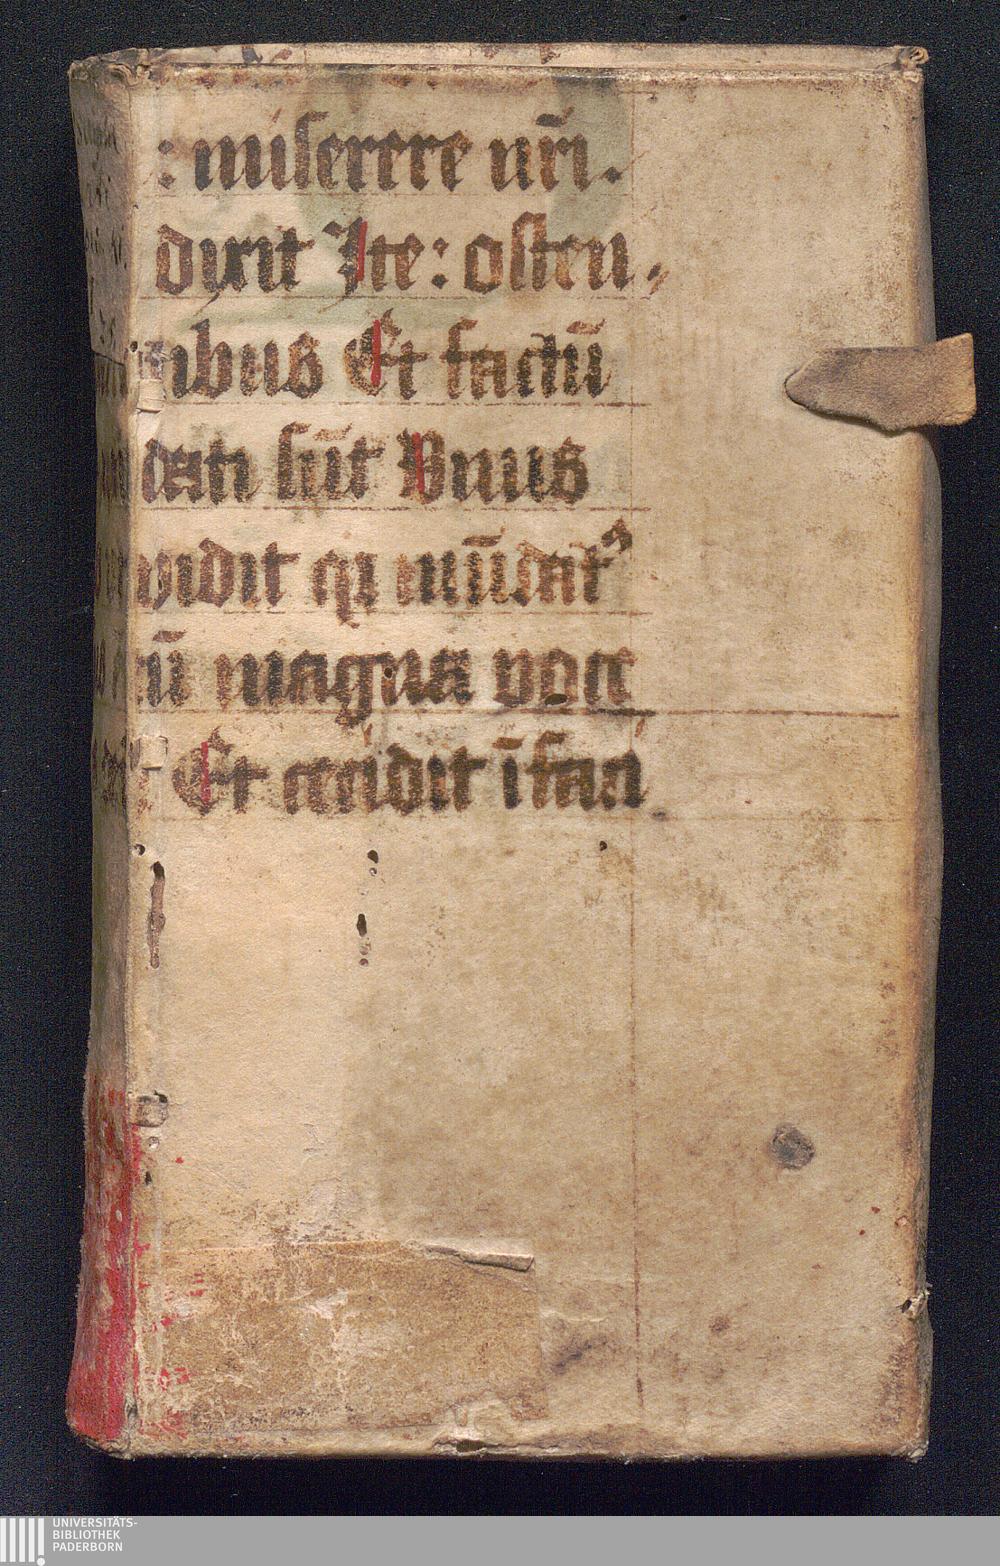 : miserere nr̄i.
dixit Ite: osten,
ibus Et factū
dati sūt Vnus
vidit qi mūdatꝰ
cū magna voce
Et cecidit ī faci
UNIVERSITÄTS-
BIBLIOTHEK
PADERBORN